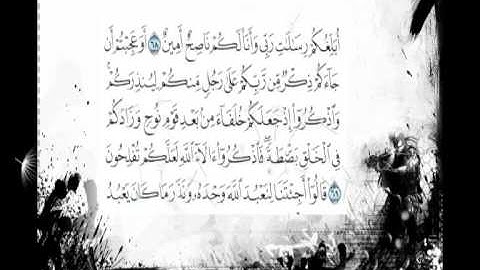 أُبَلِّغُكُمْ رِسَٰلَٰتِ رَبِّى وَأَنَا۠ لَكُمْ نَاصِحٌ أَمِينٌ ٦٨ أَوَعَجِبْتُمْ أَن
جَآءَكُمْ ذِكْرٌ مِّن رَّبِّكُمْ عَلَىٰ رَجُلٍ مِّنكُمْ لِيُنذِرَكُمْ
وَٱذْكُرُوٓا۟ إِذْ جَعَلَكُمْ خُلَفَآءَ مِنۢ بَعْدِ قَوْمِ نُوحٍ وَزَادَكُمْ
فِى ٱلْخَلْقِ بَصْۜطَةً فَٱذْكُرُوٓا۟ ءَالَآءَ ٱللَّهِ لَعَلَّكُمْ تُفْلِحُونَ
٦٩ قَالُوٓا۟ أَجِئْتَنَا لِنَعْبُدَ ٱللَّهَ وَحْدَهُۥ وَنَذَرَ مَا كَانَ يَعْبُدُ